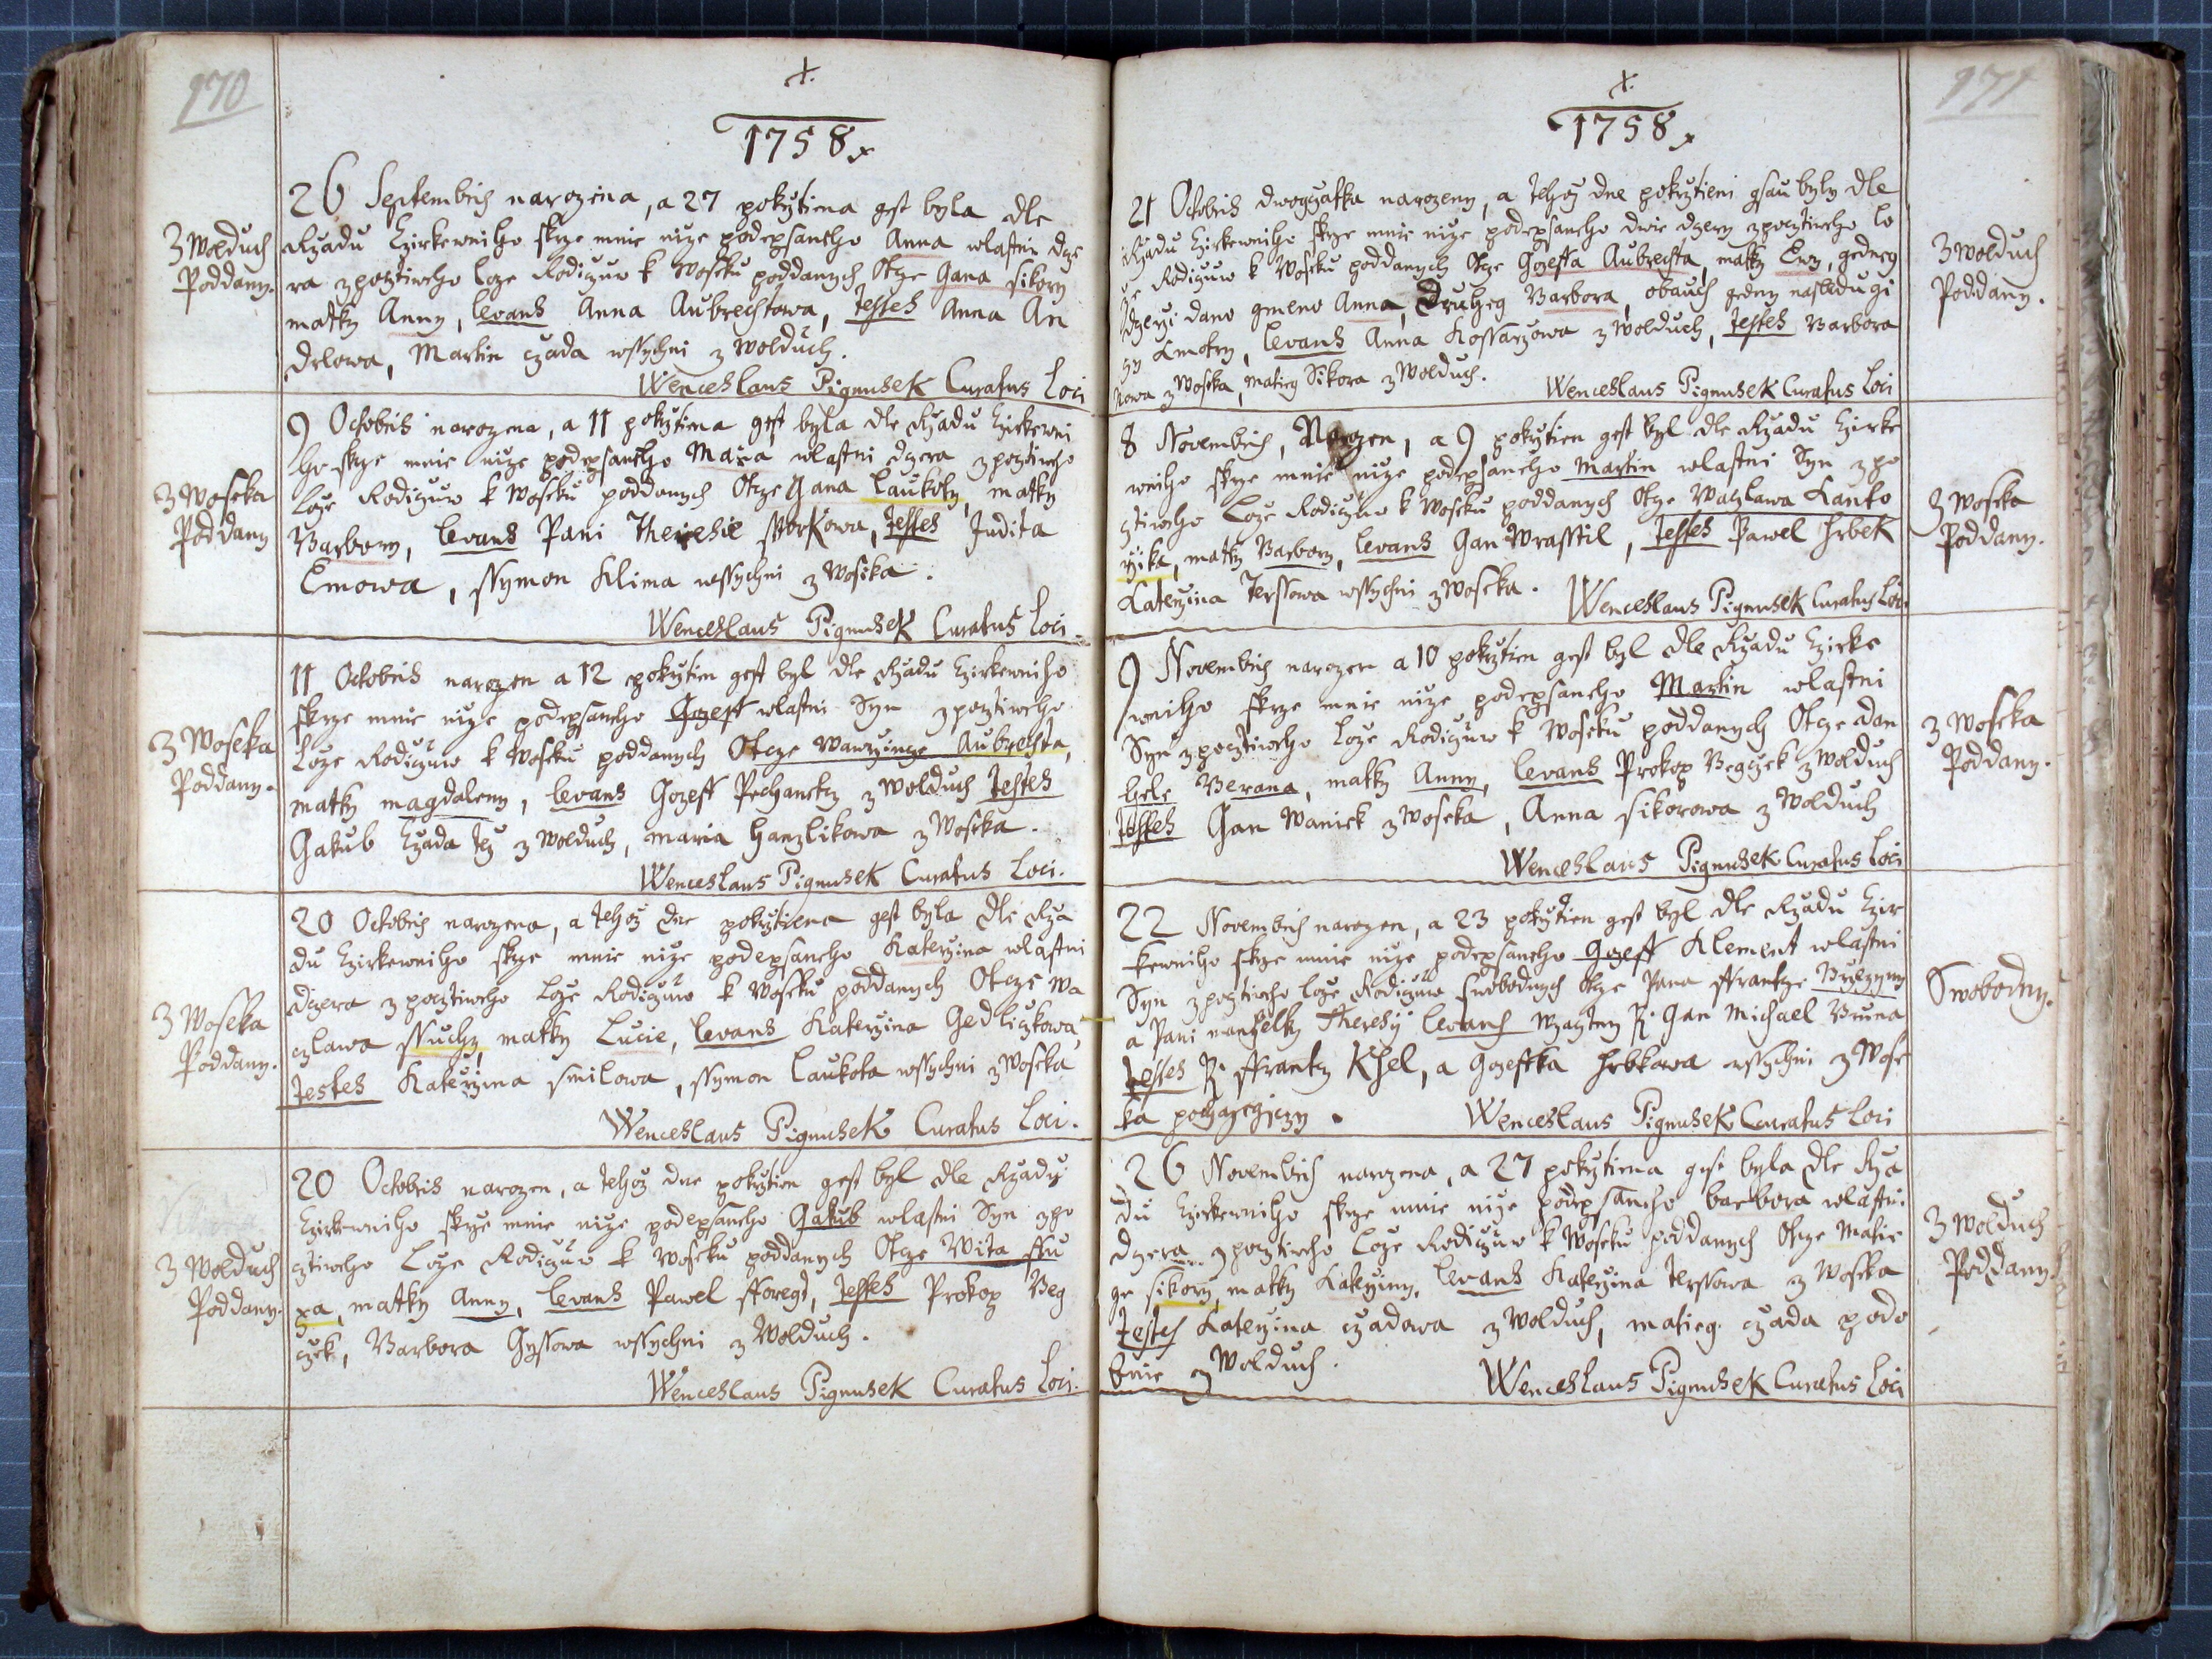 170
+.
1758.
3 Wolduch
Poddany.
26 Septembris narozena, a 27 pokrztiena gest byla dle
Rzadu Czirkewniho skrze mnie nize podepsaneho Anna wlastni dcze
ra z pocztiweho loze Rodiczuw k Woseku poddanych Otcze Gana Sikory
matky Anny, levans Anna Aubrechtowa, Testes Anna An
delowa, Martin czada wssychni z Wolduch.
Wenceslaus Pigmusek Curatus Loci
z Woseka
Poddany
9 Octobris narozena, a 11 pokrztiena gest byla dle Rzadu Czirkewni
ho skrze mnie nize podepsaneho Maria wlastni dczera z pocztiweho
Loze Rodiczuw k Woseku poddanych Otcze Gana Laukoty, matky
Barbory, levans Pani Theresie Storkowa, Testes Judita
Emowa, Ssymon Klima wssychni z Woseka.
Wenceslaus Pigmusek Curatus Loci.
z Woseka
Poddany.
11 Octobris narozen a 12 pokrztien gest byl dle Rzadu Czirkewniho
skrze mnie nize podepsaneho Gozeff wlastni Syn z pocztiweho
Loze Rodiczuw k Woseku poddanych Otcze Wawrzincze Aubrechta,
matky Magdaleny, levans Gozeff Pechanecky z Wolduch Testes
Gakub Czada tez z Wolduch, Maria Hanzlikowa z Woseka.
Wenceslaus Pigmusek Curatus Loci.
z Woseka
Poddany.
20 Octobris narozena, a tehoz dne pokrztiena gest byla dle Rza
du Czirkewniho skrze mnie nize podepsaneho Katerzina wlastni
dczera z pocztiweho Loze Rodiczuw k Woseku poddanych Otcze Wa
czlawa Ssuchy, matky Lucie, levans Katerzina Gedliczkowa,
Testes Katerzina Smilowa, Ssymon Laukota wssychni z Woseka
Wenceslaus Pigmusek Curatus Loci.
z Wolduch
Poddany.
20 Octobris narozen, a tehoz dne pokrztien gest byl dle Rzadu
Czirkewniho skrze mnie nize podepsaneho Gakub wlastni Syn z po
cztiweho Loze Rodiczuw k Woseku poddanych Otcze Wita Ffu
xa, matky Anny, levans Pawel Fforegt, Testes Prokop Beg
czek, Barbora Gyssowa wssychni z Wolduch.
Wenceslaus Pigmusek Curatus Loci.
171
+.
1758.
21 Octobris dwogczatka narozeny, a tehoz dne pokrztieni gsau byly dle
Rzadu Czirkewniho skrze mnie nize podepsaneho dwie dczery z pocztiweho lo
ze Rodiczuw k Woseku poddanych Otcze Gozeffa Aubrechta, matky Ewy, gedney
dczerzi dano gmeno Anna, Druhey Barbora, obauch gedny nasledugi
czy Kmotry, levans Anna Kossarzowa z Wolduch, Testes Barbora
nowa z Woseka, Matieg Sikora z Wolduch.
Wenceslaus Pigmusek Curatus Loci
z Wolduch
Poddany.
8 Novembris, Narozen, a 9 pokrztien gest byl dle Rzadu Czirke
wniho skrze mnie nize podepsaneho Martin wlastni Syn z po
cztiweho Loze Rodiczuw k Woseku poddanych Otcze Waczlawa Kanto
rzika, matky Barbory, levans Gan Wrasstil, Testes Pawel Hrbek
Katerzina Terssowa wssychni z Woseka.
Wenceslaus Pigmusek Curatus Loci.
z Woseka
Poddany.
9 Novembris narozen a 10 pokrztien gest byl dle Rzadu Czirke
wniho skrze mnie nize podepsaneho Martin wlastni
Syn z pocztiweho Loze Rodiczuw k Woseku poddanych Otcze Dan
hele Berana, matky Anny, levans Prokop Begczek z Wolduch
Testes Gan Waniek z Woseka, Anna Sikorowa z Wolduch
Wenceslaus Pigmusek Curatus Loci
z Woseka
Poddany.
22 Novembris narozen, a 23 pokrztien gest byl dle Rzadu Czir
kewniho skrze mnie nize podepsaneho Gozeff Klement wlastni
Syn z pocztiweho loze Rodiczuw swobodnych Otcze Pana Ffrantze
a Pani manzelky Theresy levans Wzactny P. Gan Michael Bruna
Testes P. Ffrantz Khel, a Gozeffka Hrbkowa wssychni z Wose
ka pochazegiczy.
Wenceslaus Pigmusek Curatus Loci
Swobodny.
26 Novembris narozena, a 27 pokrztiena gest byla dle Rza
du Czirkewniho skrze mnie nize podepsaneho barbora wlastni
dczera z pocztiweho Loze Rodiczuw k Woseku poddanych Otcze Matie
ge Sikory, matky Katerziny, levans Katerzina Terssowa z Woseka
Testes Katerzina czadowa z Wolduch, matieg czada podo
bnie z Wolduch.
Wenceslaus Pigmusek Curatus Loci
z Wolduch
Poddany.